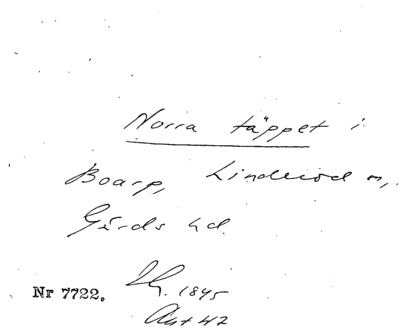 Norra täppet i
Boarp, Linderöd sn,
Gärds hd.
Nr 7722. Sk. 1845
Akt 42